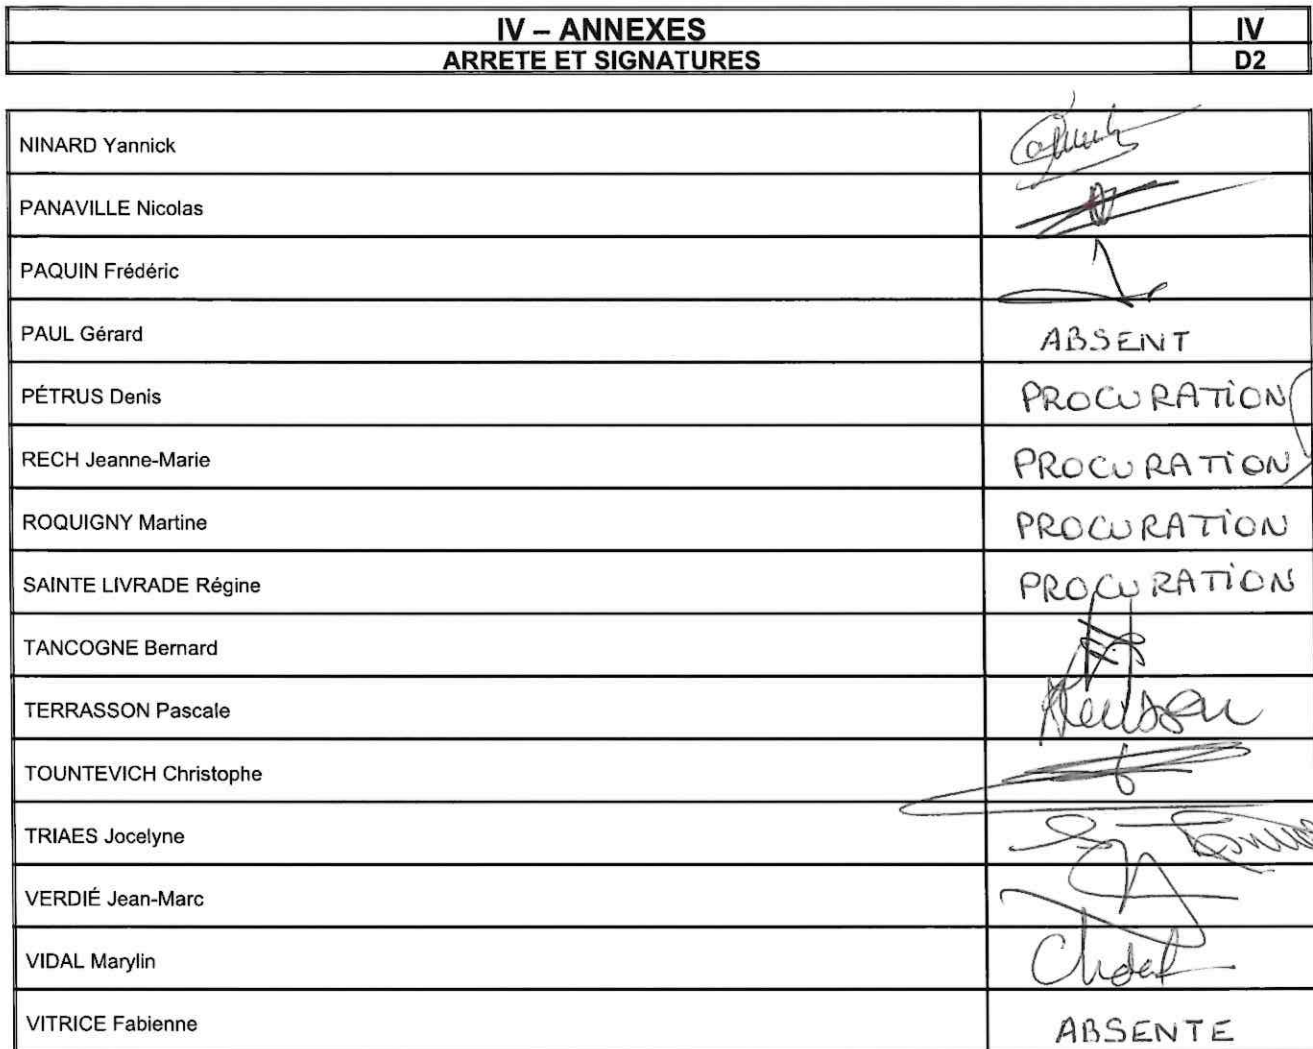 IV – ANNEXES IV
ARRETE ET SIGNATURES D2
NINARD Yannick
PANAVILLE Nicolas
PAQUIN Frédéric
PAUL Gérard ABSENT
PÉTRUS Denis PROCURATION
RECH Jeanne-Marie PROCURATION
ROQUIGNY Martine PROCURATION
SAINTE LIVRADE Régine PROCURATION
TANCOGNE Bernard
TERRASSON Pascale
TOUNTEVICH Christophe
TRIAES Jocelyne
VERDIÉ Jean-Marc
VIDAL Marylin
VITRICE Fabienne ABSENTE